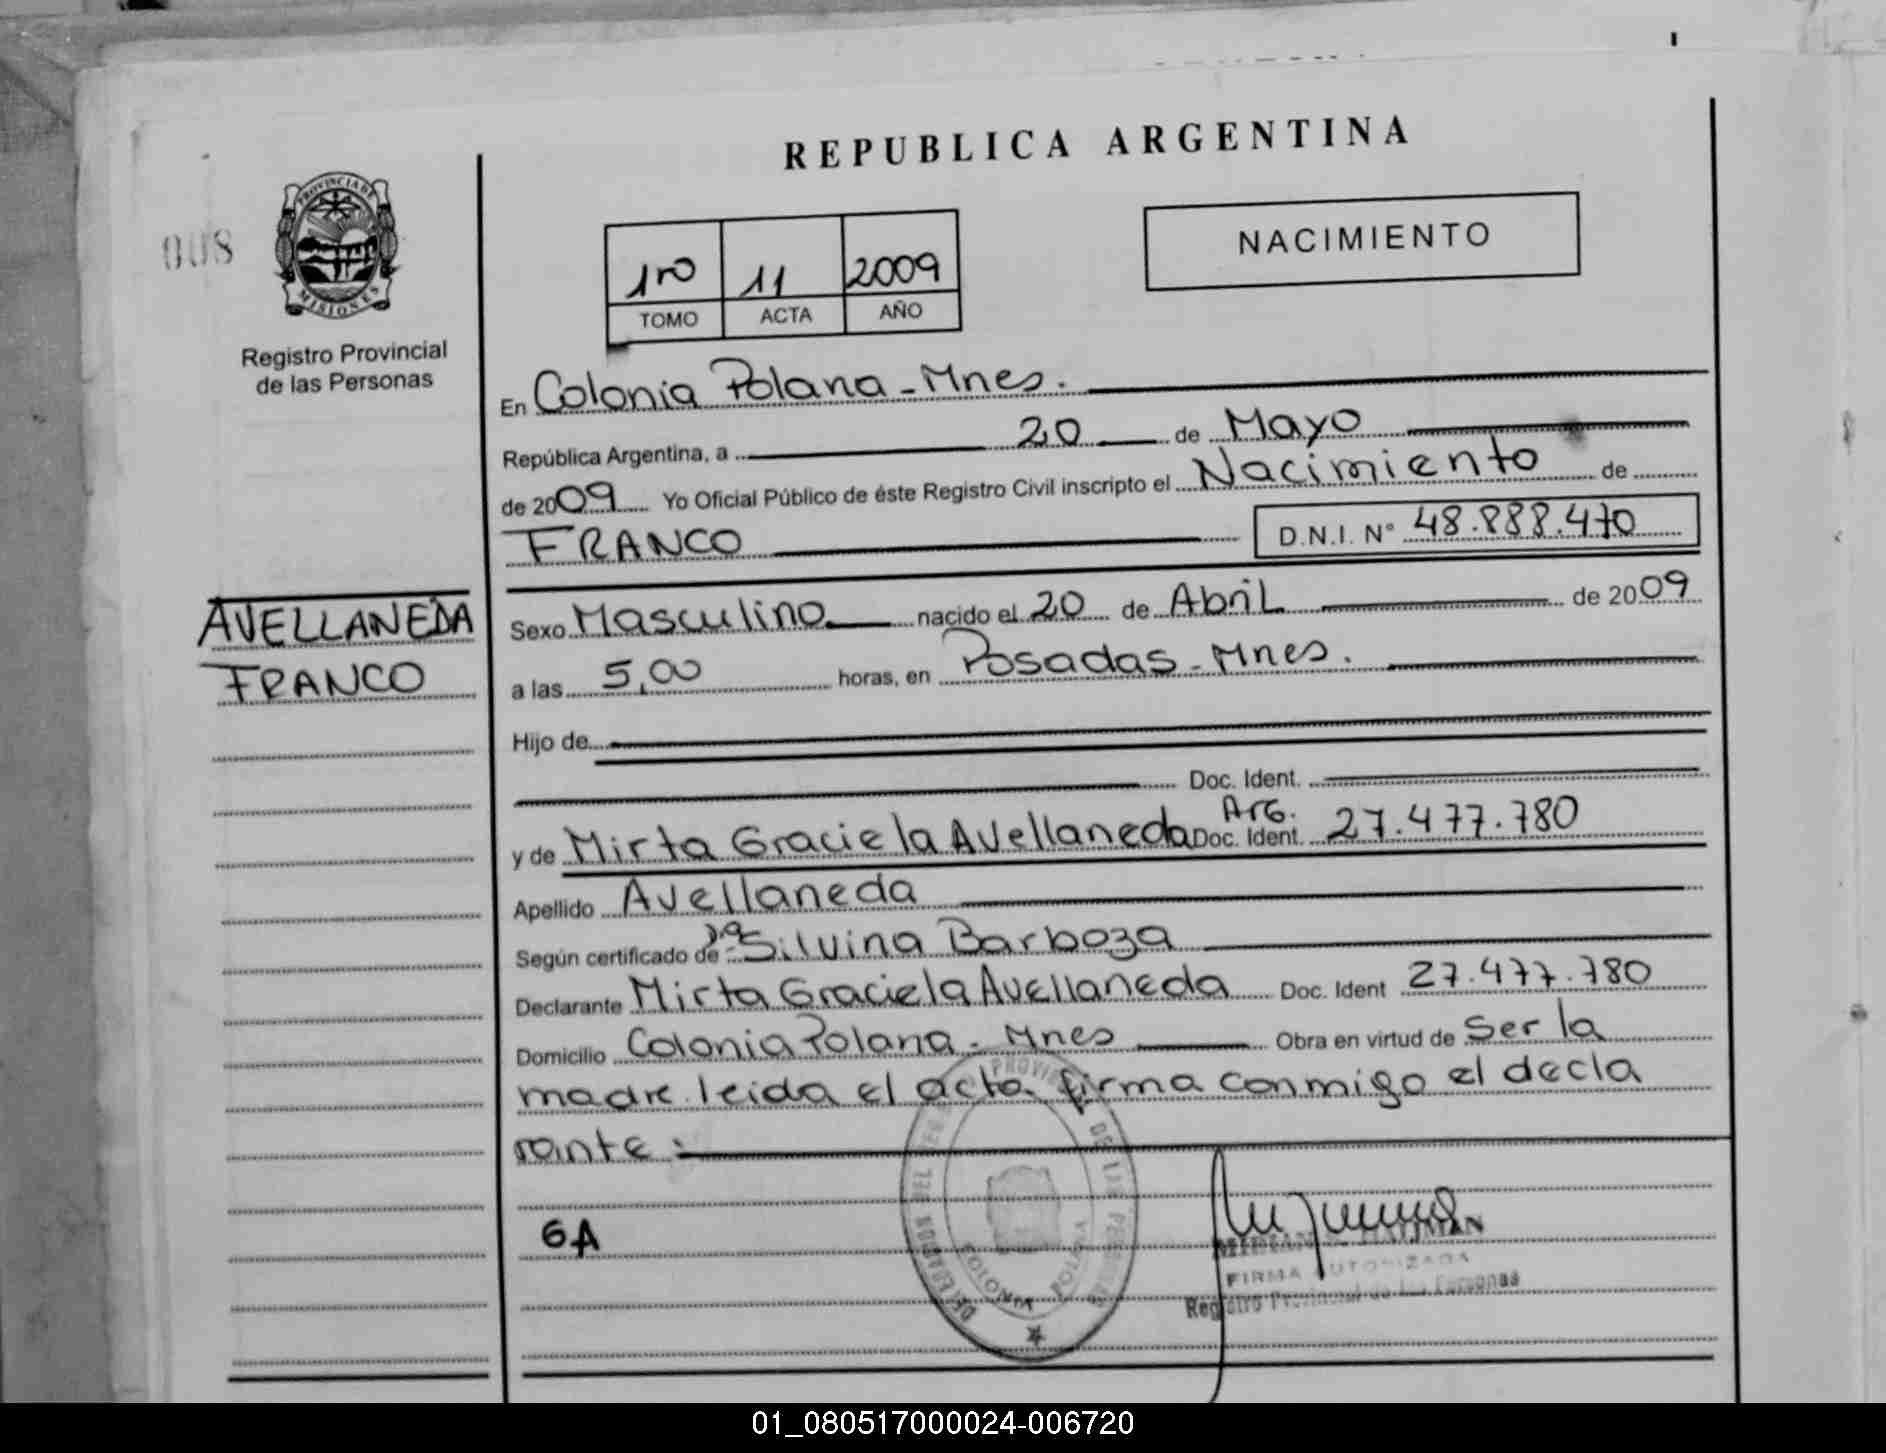 REPUBLICA ARGENTINA
PROVINCIA DE
MISIONES
008
Registro Provincial
de las Personas
1ro 11 2009
TOMO ACTA AÑO
NACIMIENTO
En Colonia Polana - Mnes.
República Argentina, a 20 de Mayo
de 2009 Yo Oficial Público de éste Registro Civil inscripto el Nacimiento de
FRANCO D.N.I. N° 48.888.470
AVELLANEDA
FRANCO
Sexo Masculino nacido el 20 de Abril de 2009
a las 5,00 horas, en Posadas - Mnes.
Hijo de
Doc. Ident.
y de Mirta Graciela Avellaneda Arg. Doc. Ident. 27.477.780
Apellido Avellaneda
Según certificado de Silvina Barboza
Declarante Mirta Graciela Avellaneda Doc. Ident 27.477.780
Domicilio Colonia Polana - Mnes Obra en virtud de Ser la
madre. leida el acta firma conmigo el decla
rante.
GA
DE LAS PERSONAS
COLONIA POLANA
FIRMA AUTORIZADA
Registro Provincial de las Personas
01_080517000024-006720